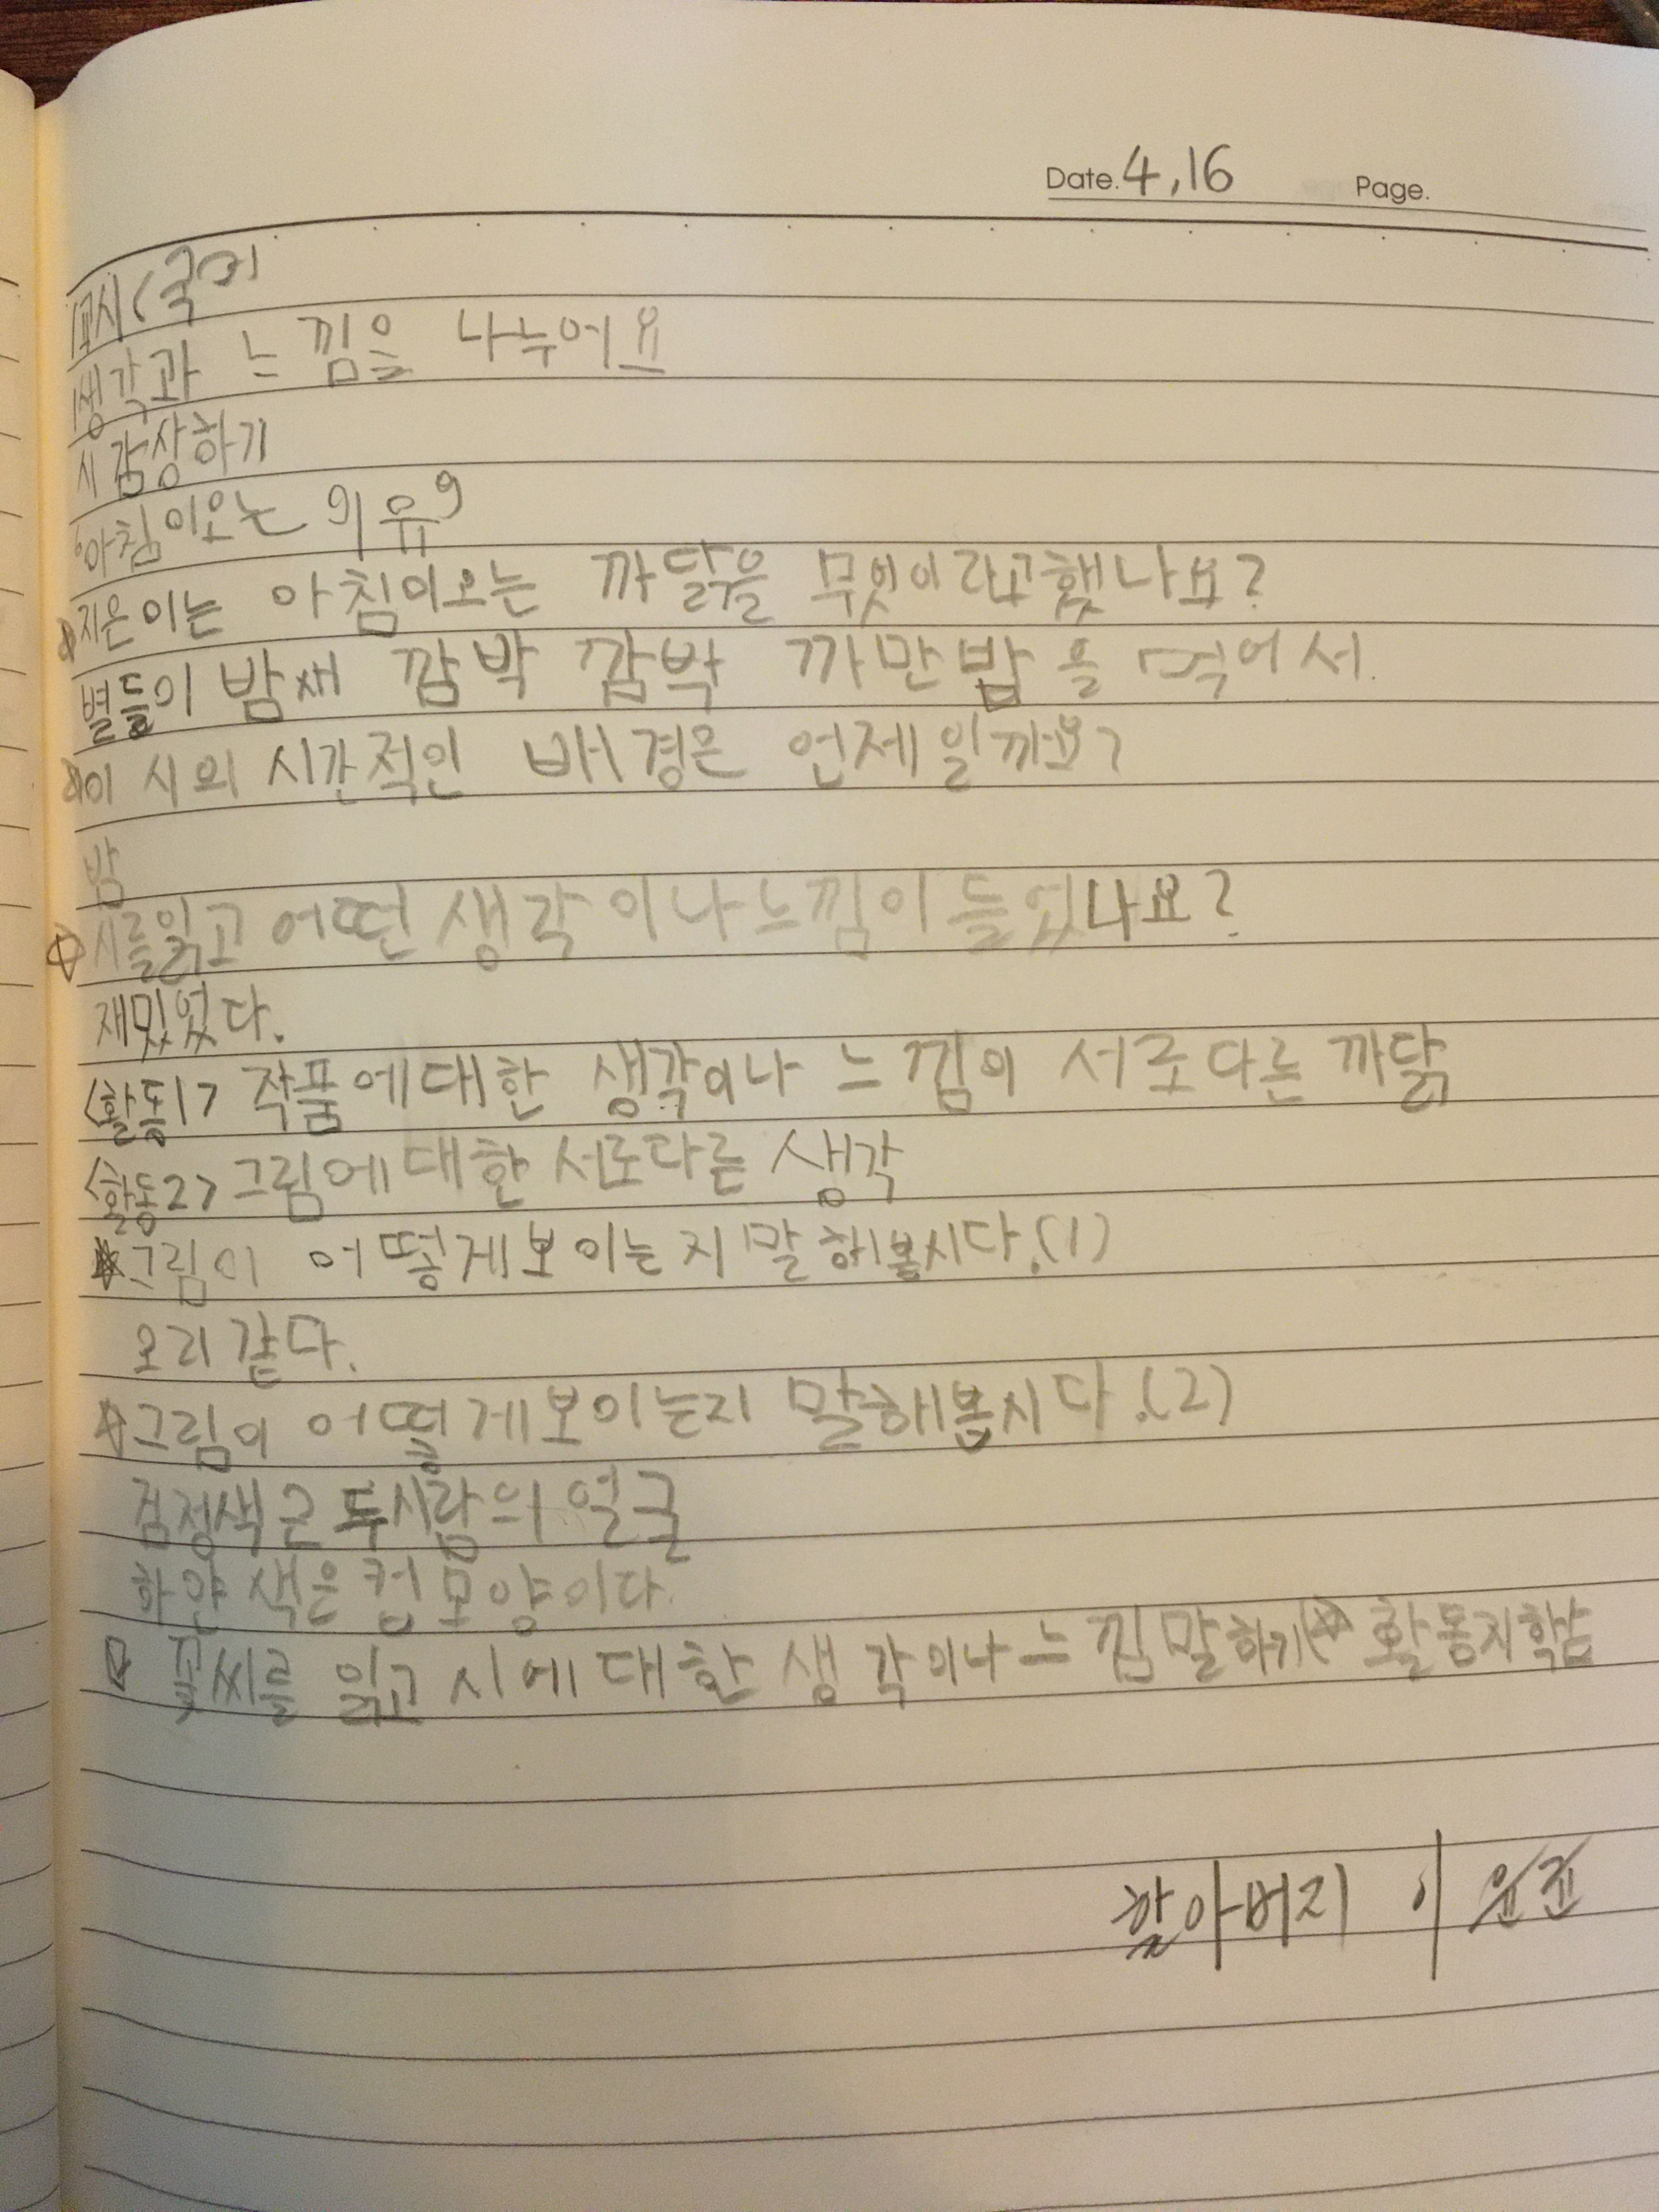 Date. 4, 16 Page.
1교시 (국어)
생각과 느낌을 나누어요
시 감상하기
'아침이오는 이유'
지은이는 아침이오는 까닭을 무엇이라고했나요?
별들이 밤새 깜박 깜박 까만밥을 먹어서.
이 시의 시간적인 배경은 언제일까요?
밤
시를읽고 어떤 생각이나느낌이 들었나요?
재밌었다.
<활동1> 작품에대한 생각이나 느낌이 서로다른 까닭
<활동2> 그림에대한 서로다른 생각
그림이 어떻게보이는지 말해봅시다.(1)
오리 같다.
그림이 어떻게보이는지 말해봅시다.(2)
검정색은 두사람의 얼굴
하얀색은 컵모양이다.
꽃씨를 읽고 시에대한 생각이나 느낌말하기 활동지학습
할아버지 이